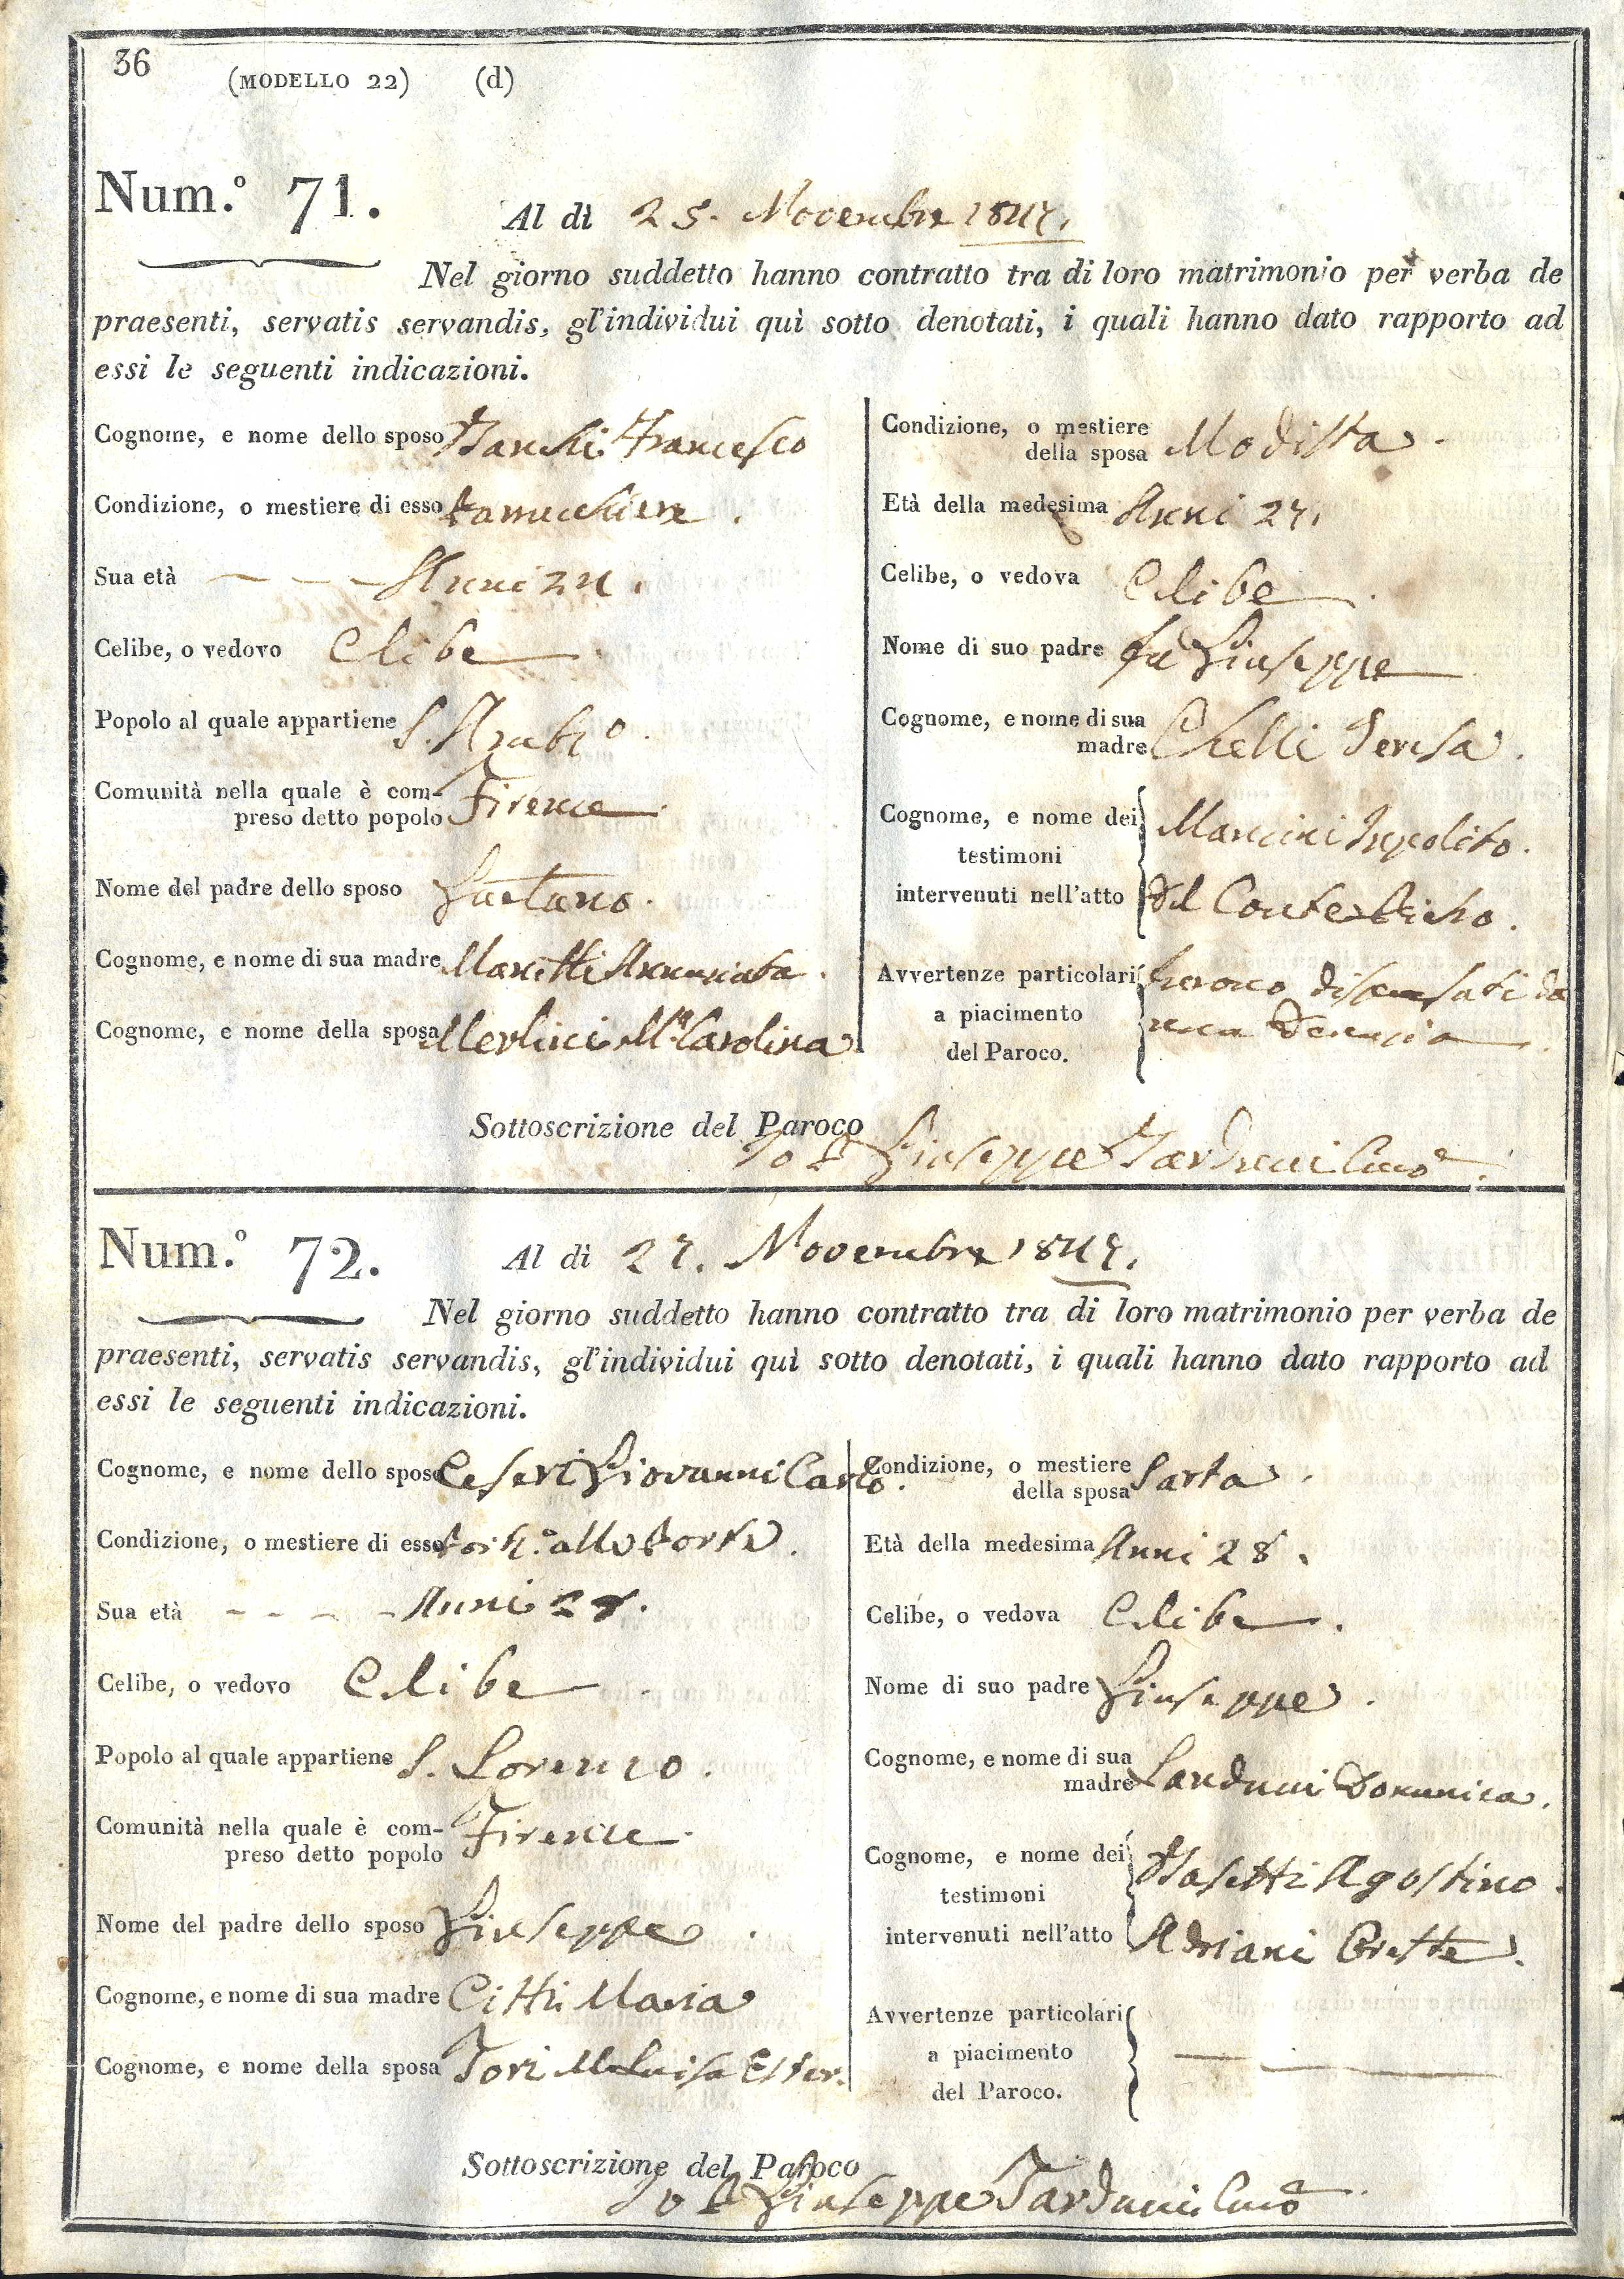 36
(MODELLO 22) (d)
Num.º 71.
Al dì 25. Novembre 1847.
Nel giorno suddetto hanno contratto tra di loro matrimonio per verba de
praesenti, servatis servandis, gl'individui quì sotto denotati, i quali hanno dato rapporto ad
essi le seguenti indicazioni.
Cognome, e nome dello sposo Francesco
Condizione, o mestiere di esso
Sua età Anni 24.
Celibe, o vedovo Celibe
Popolo al quale appartiene S.
Comunità nella quale è com-
preso detto popolo Firenze
Nome del padre dello sposo Gaetano.
Cognome, e nome di sua madre Manetti Annunziata.
Cognome, e nome della sposa Merlini Mª Carolina
Condizione, o mestiere
della sposa Modista.
Età della medesima Anni 27.
Celibe, o vedova Celibe.
Nome di suo padre fu Giuseppe
Cognome, e nome di sua
madre Chelli Teresa.
Cognome, e nome dei
testimoni
intervenuti nell'atto
Mancini Ippolito.
Del Conte
Avvertenze particolari
a piacimento
del Paroco.
furono dispensati da
una Denunzia
Sottoscrizione del Paroco
Io P Giuseppe Tarduni
Num.º 72.
Al dì 27. Novembre 1847.
Nel giorno suddetto hanno contratto tra di loro matrimonio per verba de
praesenti, servatis servandis, gl'individui quì sotto denotati, i quali hanno dato rapporto ad
essi le seguenti indicazioni.
Cognome, e nome dello sposo Ceseri Giovanni Carlo.
Condizione, o mestiere di esso
Sua età Anni
Celibe, o vedovo Celibe
Popolo al quale appartiene S. Lorenzo.
Comunità nella quale è com-
preso detto popolo Firenze
Nome del padre dello sposo Giuseppe.
Cognome, e nome di sua madre Citti Maria
Cognome, e nome della sposa Tori Mª Luisa Ester.
Condizione, o mestiere
della sposa Sarta.
Età della medesima Anni 28.
Celibe, o vedova Celibe.
Nome di suo padre Giuseppe.
Cognome, e nome di sua
madre Landuni Domenica.
Cognome, e nome dei
testimoni
intervenuti nell'atto
Agostino.
Adriani Oreste.
Avvertenze particolari
a piacimento
del Paroco.
Sottoscrizione del Paroco
Io P Giuseppe Tarduni